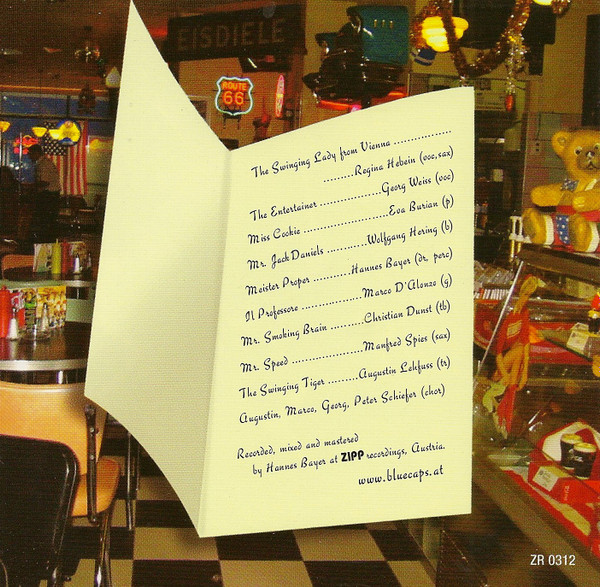 EISDIELE
ROUTE
66
The Swinging Lady from Vienna .................
..........Regina Hebein (voc,sax)
The Entertainer ..................Georg Weiss (voc)
Miss Cookie .........................Eva Burian (p)
Mr. Jack Daniels ............Wolfgang Hering (b)
Meister Proper ...........Hannes Bayer (dr, perc)
Il Professore ..................Marco D'Alonzo (g)
Mr. Smoking Brain ..........Christian Dunst (tb)
Mr. Speed .....................Manfred Spies (sax)
The Swinging Tiger .........Augustin Lehfuss (tr)
Augustin, Marco, Georg, Peter Schiefer (chor)
Recorded, mixed and mastered
by Hannes Bayer at ZIPP recordings, Austria.
www.bluecaps.at
ZR 0312